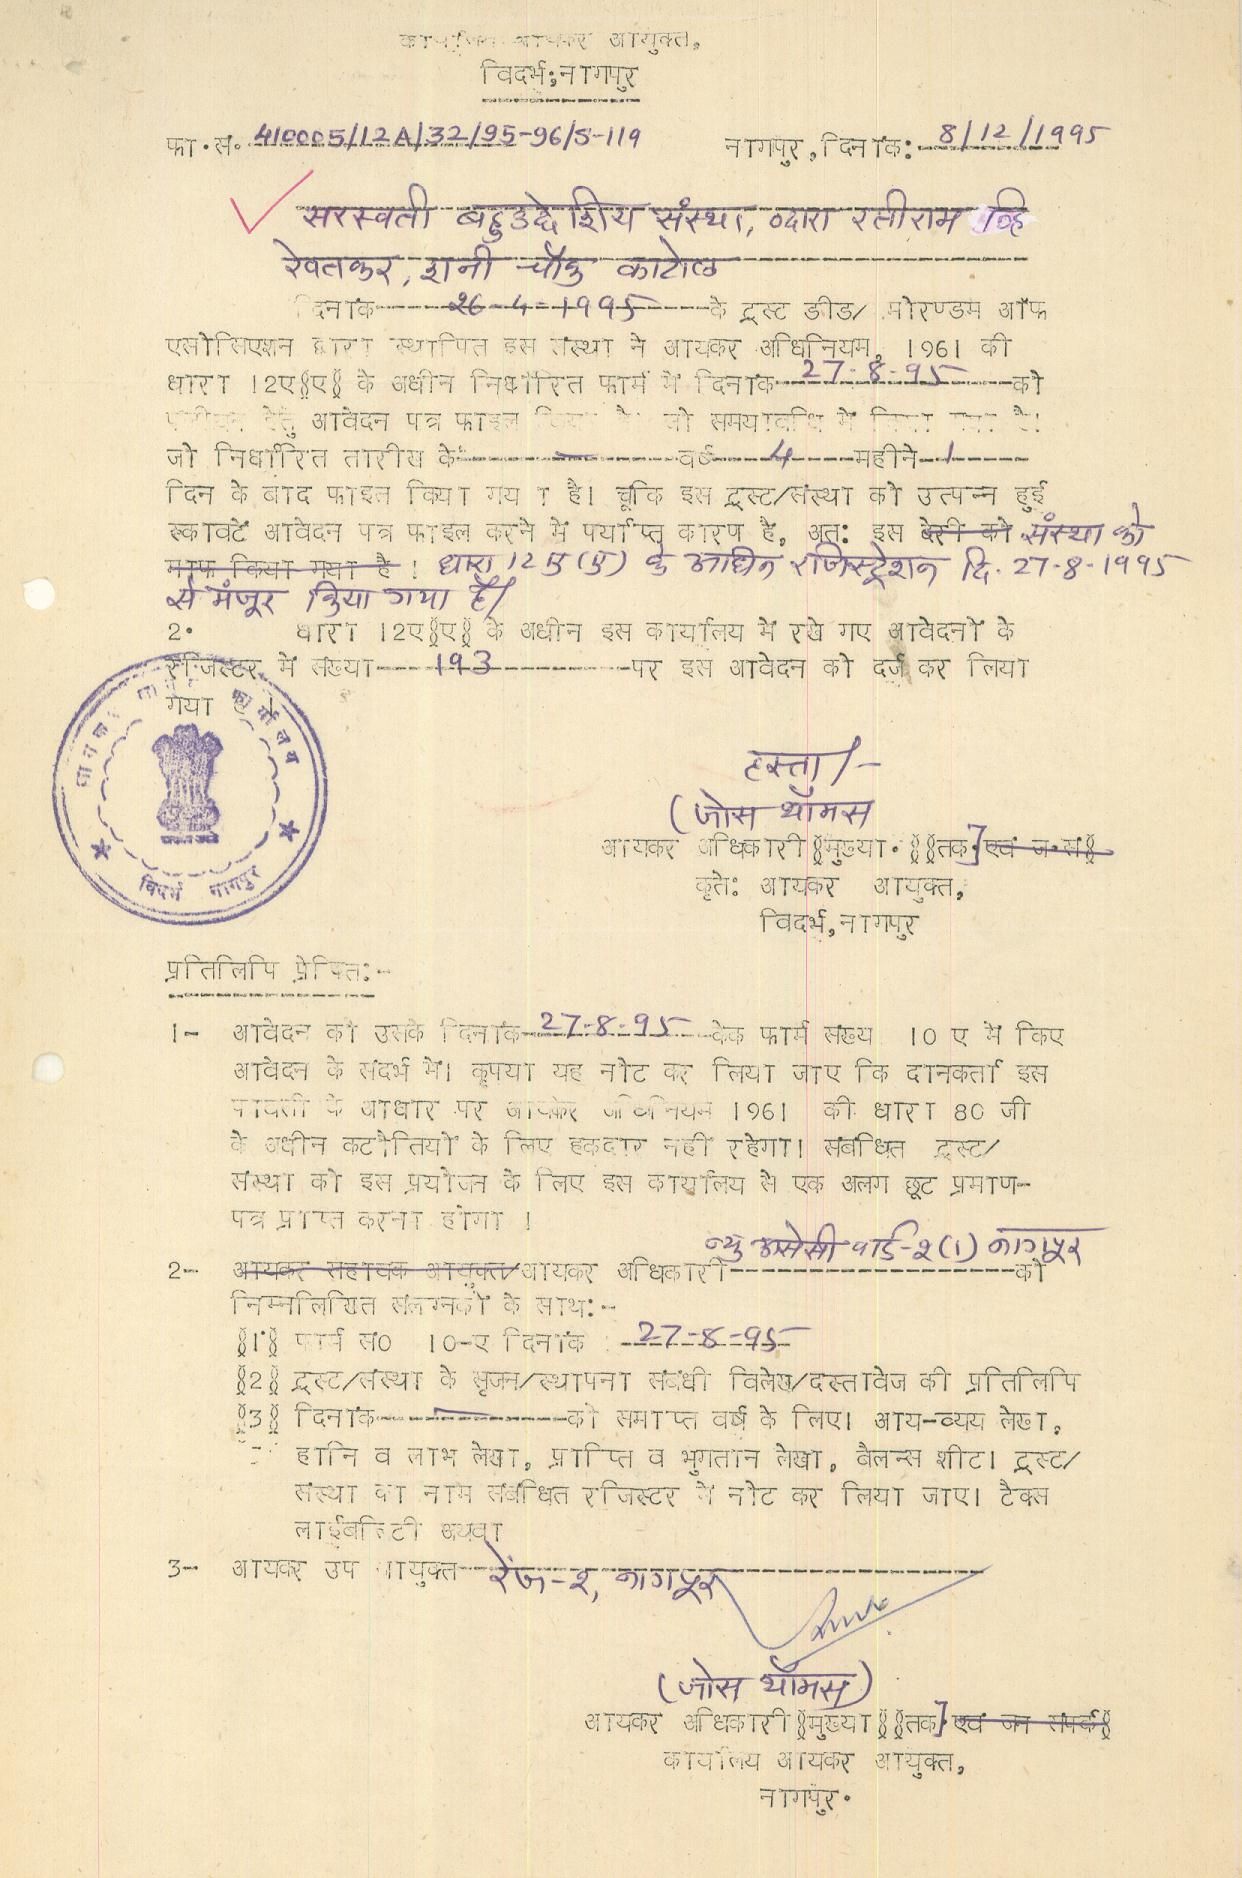 कार्यालय आयकर आयुक्त,
विदर्भ,नागपुर
फा.सं. 410005/12A/32/95-96/S-119 नागपुर,दिनांक: 8/12/1995
सरस्वती बहुउद्देशिय संस्था, व्दारा रतीराम व्हि
रेवतकर, शनी चौक काटोल
दिनांक 26-4-1995 के ट्रस्ट डीड/ मोरण्डम ऑफ
एसोसिएशन द्वारा स्थापित इस संस्था ने आयकर अधिनियम, 1961 की
धारा 12ए(ए) के अधीन निर्धारित फार्म में दिनांक 27-8-95 को
पंजीयन हेतु आवेदन पत्र फाइल किया है। जो समयावधि में किया गया है।
जो निर्धारित तारीख के - वर्ष 4 महीने 1
दिन के बाद फाइल किया गया है। चूंकि इस ट्रस्ट/संस्था को उत्पन्न हुई
रुकावटें आवेदन पत्र फाइल करने में पर्याप्त कारण है, अत: इस देरी को संस्था को
माफ किया गया है ! धारा 12 ए (ए) के आधीन रजिस्ट्रेशन दि. 27-8-1995
से मंजूर किया गया है/
2. धारा 12ए(ए) के अधीन इस कार्यालय में रखे गए आवेदनों के
रजिस्टर में संख्या 193 पर इस आवेदन को दर्ज कर लिया
गया है।
कार्यालय
विदर्भ नागपुर
हस्ता/-
(जोस थॉमस
आयकर अधिकारी (मुख्या. ((तक.) एवं ज.सं)
कृते: आयकर आयुक्त,
विदर्भ,नागपुर
प्रतिलिपि प्रेषित:-
1- आवेदन को उसके दिनांक 27-8-95 केक फार्म संख्य 10 ए में किए
आवेदन के संदर्भ में। कृपया यह नोट कर लिया जाए कि दानकर्ता इस
पावती के आधार पर आयकर अधिनियम 1961 की धारा 80 जी
के अधीन कटौतियों के लिए हकदार नहीं रहेगा। संबंधित ट्रस्ट/
संस्था को इस प्रयोजन के लिए इस कार्यालय से एक अलग छूट प्रमाण-
पत्र प्राप्त करना होगा ।
न्यु असेसी वार्ड-2(1) नागपूर
2- आयकर सहायक आयुक्त/आयकर अधिकारी को
निम्नलिखित संलग्नकों के साथ:-
(1) फार्म सं0 10-ए दिनांक : 27-8-95
(2) ट्रस्ट/संस्था के सृजन/स्थापना संबंधी विलेख/दस्तावेज की प्रतिलिपि
(3) दिनांक - को समाप्त वर्ष के लिए। आय-व्यय लेखा,
हानि व लाभ लेखा, प्राप्ति व भुगतान लेखा, बैलन्स शीट। ट्रस्ट/
संस्था का नाम संबंधित रजिस्टर में नोट कर लिया जाए। टैक्स
लाईबलिटी अथवा
3- आयकर उप आयुक्त रेंज-2, नागपूर
(जोस थॉमस)
आयकर अधिकारी (मुख्या ((तक.) एवं जन संपर्क)
कार्यालय आयकर आयुक्त,
नागपुर.